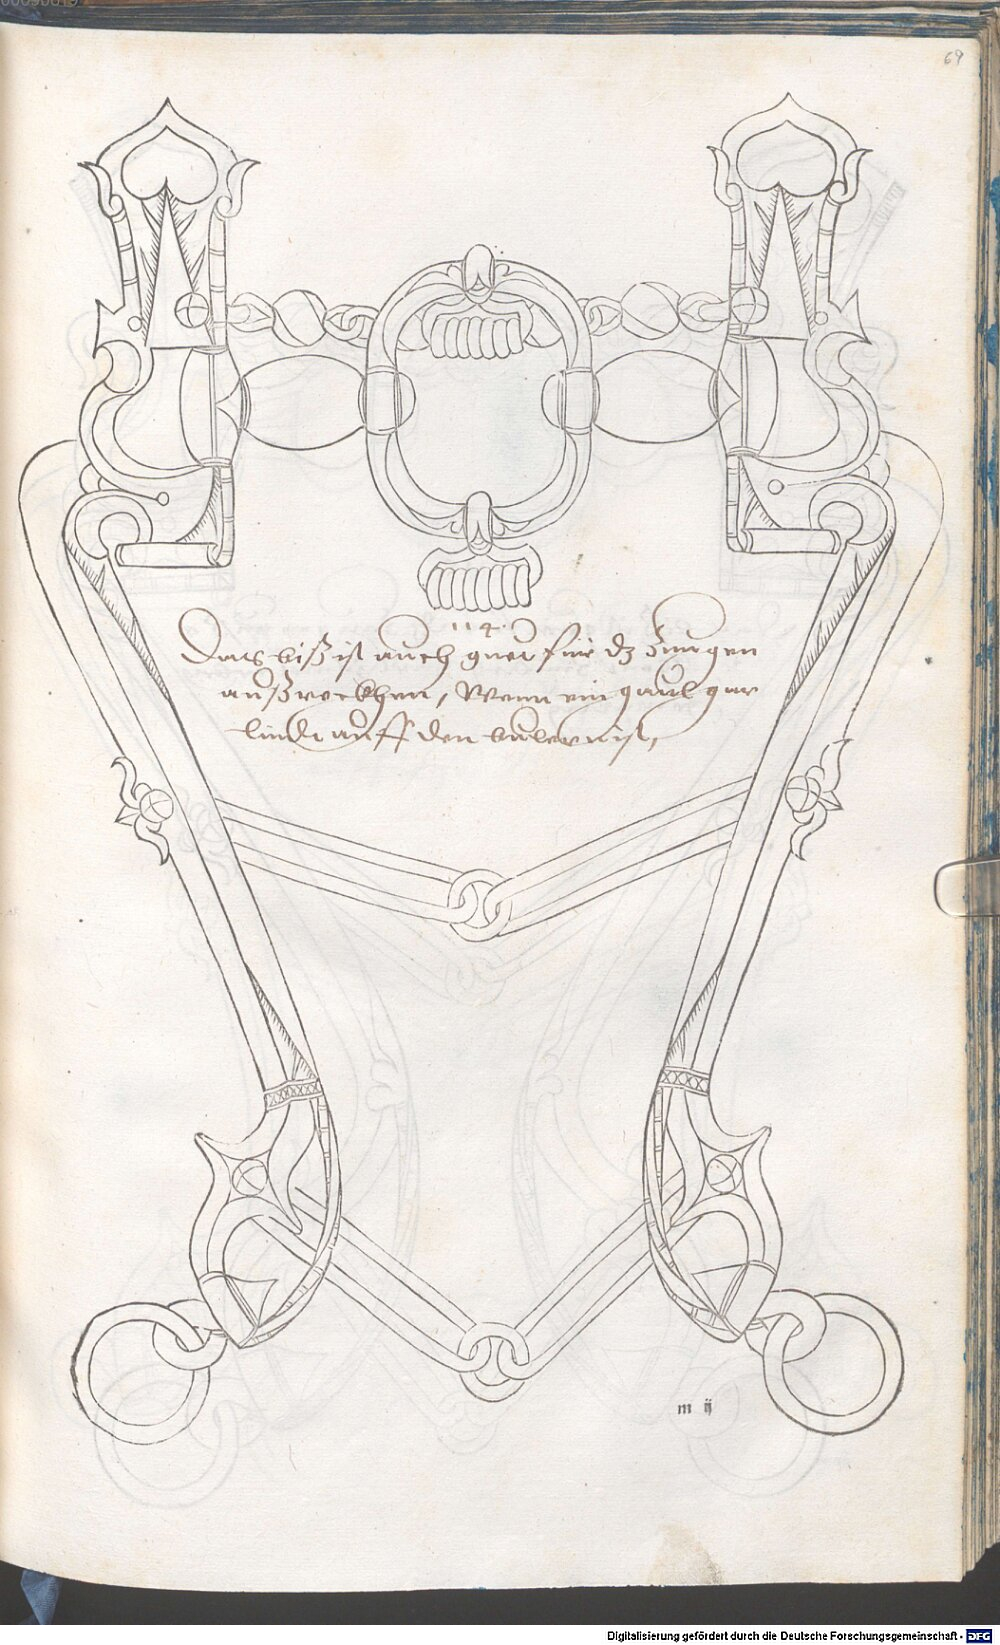 69
114.
Das biß ist auch guet für dz Zungen
außreckhen, Wenn ein gaul gar
lindt auff den bulern ist,
m ij
Digitalisierung gefördert durch die Deutsche Forschungsgemeinschaft - DFG